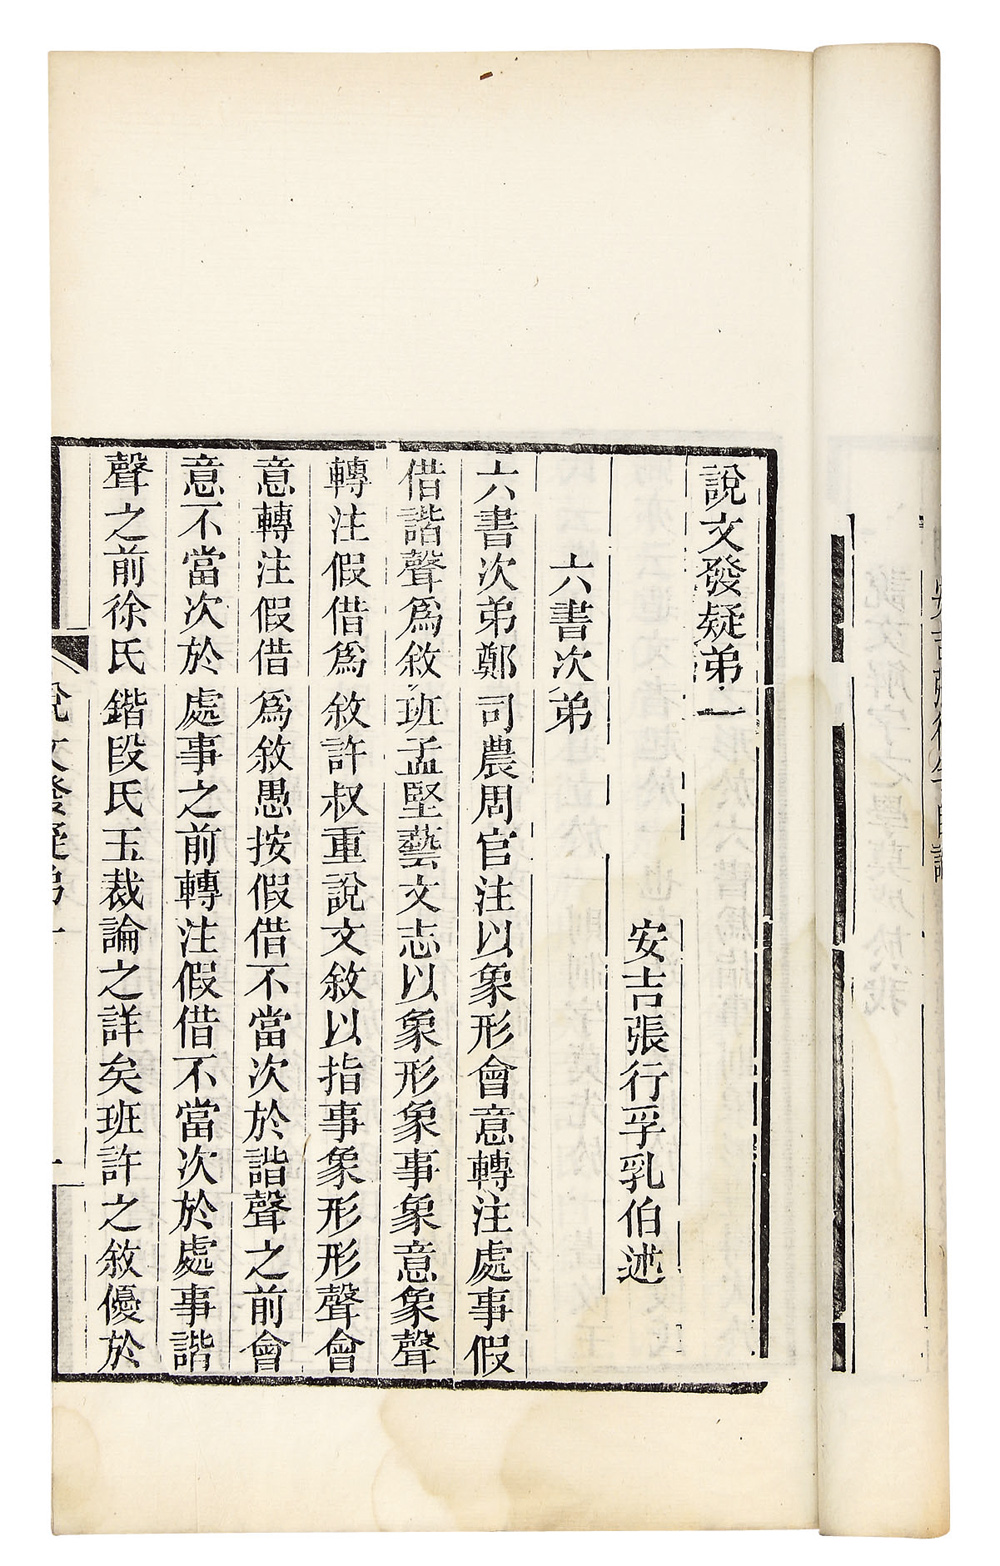 說文發疑弟一
安吉張行孚乳伯述
六書次弟
六書次弟鄭司農周官注以象形會意轉注處事假
借諧聲爲敘班孟堅藝文志以象形象事象意象聲
轉注假借爲敘許叔重說文敘以指事象形形聲會
意轉注假借爲敘愚按假借不當次於諧聲之前會
意不當次於處事之前轉注假借不當次於處事諧
聲之前徐氏鍇段氏玉裁論之詳矣班許之敘優於
說文發疑弟一
一